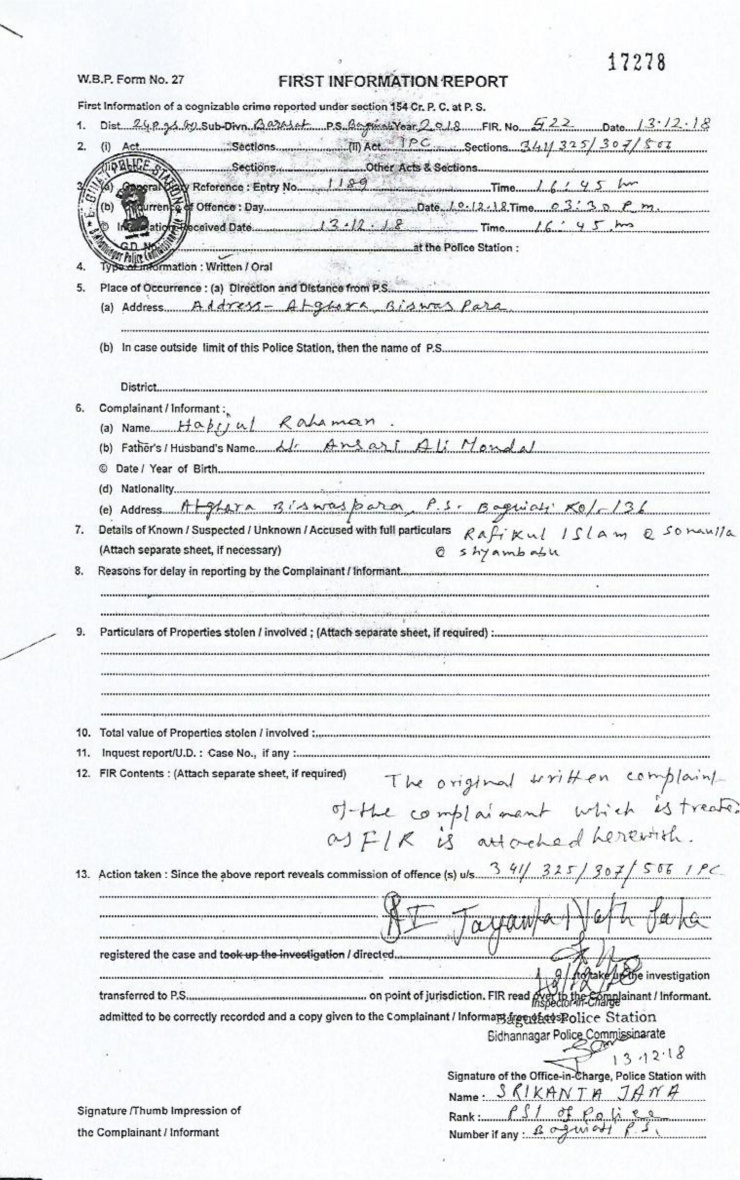 17278
W.B.P. Form No. 27
FIRST INFORMATION REPORT
First Information of a cognizable crime reported under section 154 Cr. P. C. at P. S.
1. Dist. 24 P.gs (N) Sub-Divn. Barasat P.S. Baguiati Year 2018 FIR. No. 522 Date 13.12.18
2. (i) Act Sections (ii) Act IPC Sections 341/325/307/506
Sections Other Acts & Sections
3. (a) General Reference : Entry No. 1189 Time 16:45 hr
(b) Occurrence of Offence : Day Date 10.12.18 Time 03:30 P.m.
© Information Received Date 13.12.18 Time 16:45 hr
G.D. No. at the Police Station :
4. Type of Information : Written / Oral
5. Place of Occurrence : (a) Direction and Distance from P.S.
(a) Address Address- Atghora, Biswas Para
(b) In case outside limit of this Police Station, then the name of P.S.
District
6. Complainant / Informant :
(a) Name Habijul Rahaman.
(b) Father's / Husband's Name Lt. Ansari Ali Mondal
© Date / Year of Birth
(d) Nationality
(e) Address Atghora Biswaspara, P.S. Baguiati Kol-136
7. Details of Known / Suspected / Unknown / Accused with full particulars Rafikul ISlam @ Sonaulla
(Attach separate sheet, if necessary) @ Shyambabu
8. Reasons for delay in reporting by the Complainant / Informant
9. Particulars of Properties stolen / involved ; (Attach separate sheet, if required) :
10. Total value of Properties stolen / involved :
11. Inquest report/U.D. : Case No., if any :
12. FIR Contents : (Attach separate sheet, if required) The original written complaint
of the complainant which is treated
as FIR is attached herewith.
13. Action taken : Since the above report reveals commission of offence (s) u/s 341/325/307/506 IPC
SI Jayanta Nath Saha
registered the case and took up the investigation / directed
to take up the investigation
transferred to P.S. on point of jurisdiction. FIR read over to the Complainant / Informant.
Inspector-in-Charge
admitted to be correctly recorded and a copy given to the Complainant / Informant free of cost
Baguiati Police Station
Bidhannagar Police Commissinarate
13.12.18
Signature of the Office-in-Charge, Police Station with
Name : SRIKANTA JANA
Rank : PSI of Police
Number if any : Baguiati P.S.
Signature /Thumb Impression of
the Complainant / Informant